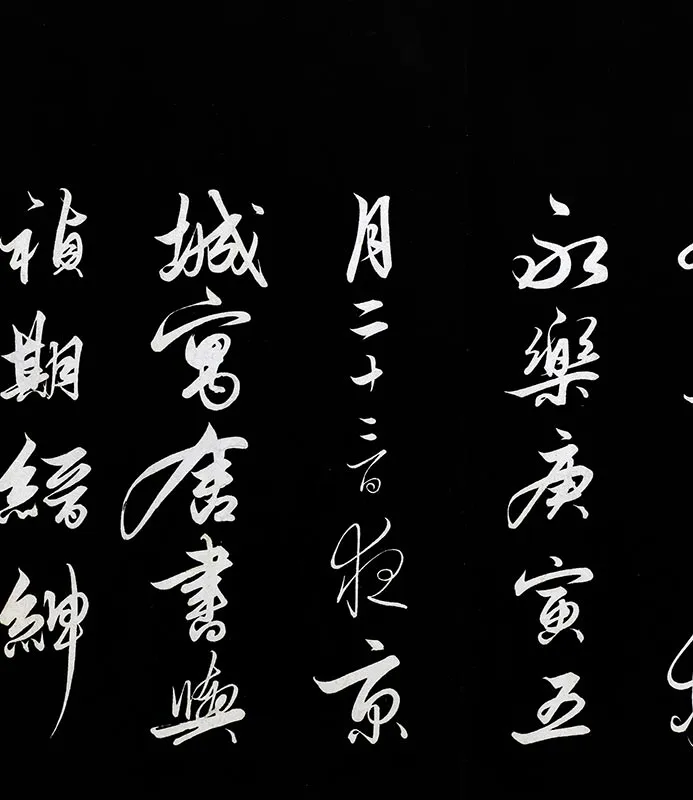 永樂庚寅五
月二十三日夜京
城寓舍書與
禎期縉紳